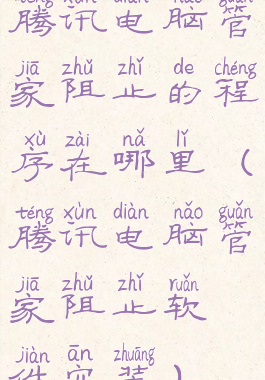 téng xùn diàn nǎo guǎn
腾讯电脑管
jiā zhǔ zhǐ de chéng
家阻止的程
xù zài nǎ lǐ
序在哪里（
téng xùn diàn nǎo guǎn
腾讯电脑管
jiā zhǔ zhǐ ruǎn
家阻止软
jiàn ān zhuāng
件安装）